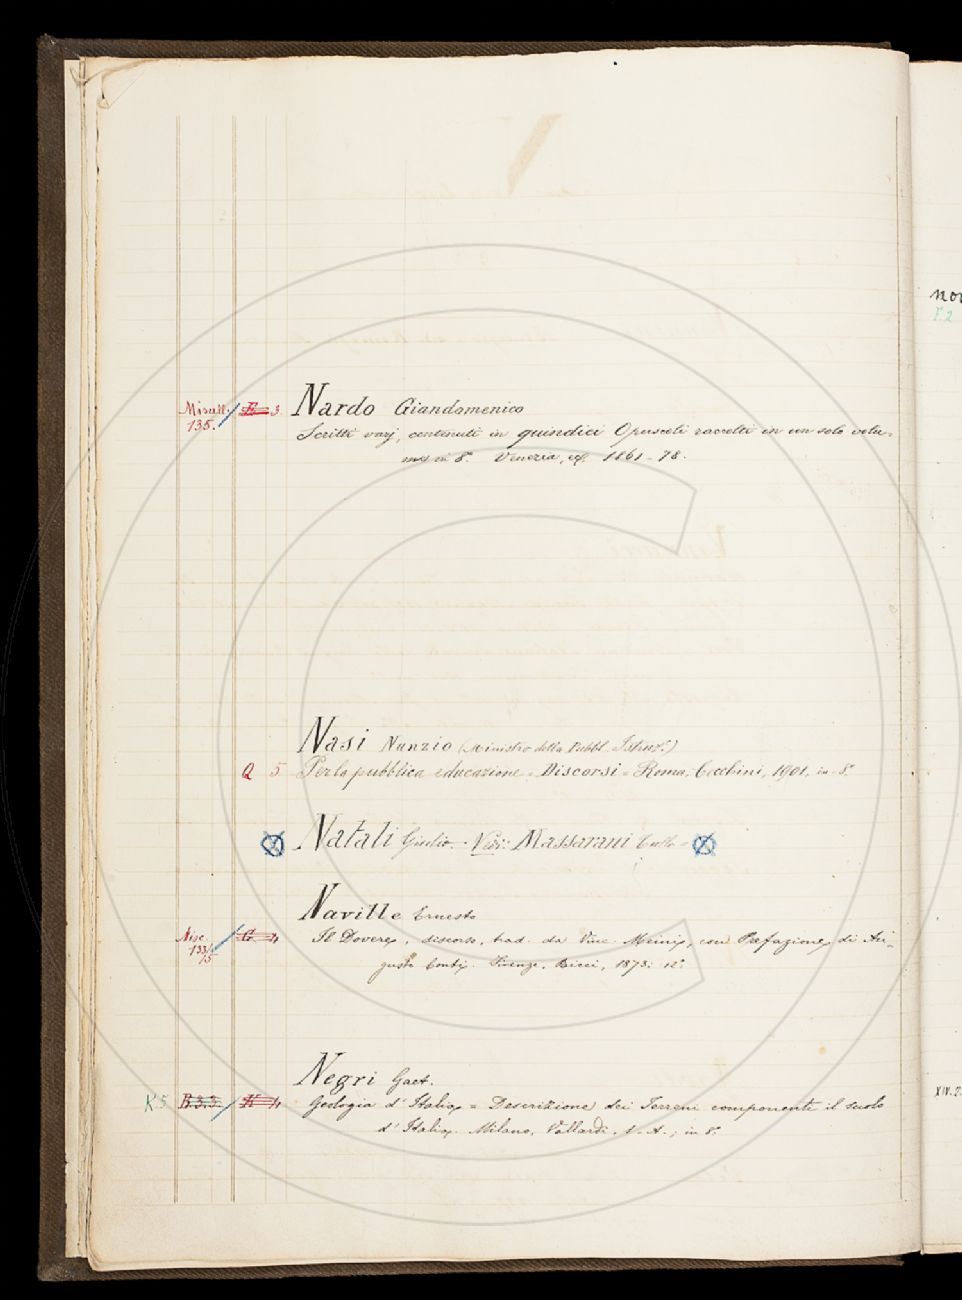 Nardo Giandomenico
Miscell. 135. E 3.
Scritti varj, contenuti in quindici Opuscoli raccolti in un solo volu-
me in 8°. Venezia, 1861-78.
Nasi Nunzio (Ministro della Pubbl. Istruz.)
Q 5 Per la pubblica educazione = Discorsi = Roma, Cecchini, 1901, in-8°
Natali Giulio. Vedi: Massarani Tullo =
Naville Ernesto
Misc. 133/5 G 4 Il Dovere, discorso, trad. da Vinc. Meini, con Prefazione di Au-
gusto Conti. Firenze, Ricci, 1873: 12°
Negri Gaet.
K 5 B.3.3. K 4 Geologia d'Italia = Descrizione dei Terreni componenti il suolo
d'Italia. Milano, Vallardi, S. A., in 8°.
XIV. 2